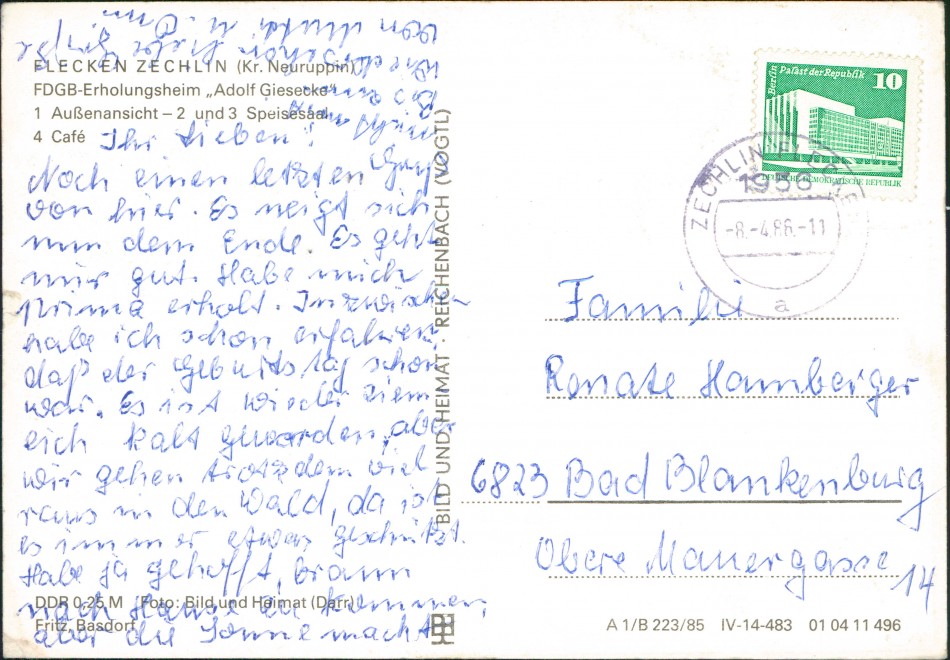 FLECKEN ZECHLIN (Kr. Neuruppin)
FDGB-Erholungsheim „Adolf Giesecke"
1 Außenansicht – 2 und 3 Speisesaal
4 Café
Ihr Lieben!
Noch einen letzten Gruß
von hier. Es neigt sich
nun dem Ende. Es geht
mir gut. Habe mich
prima erholt. Inzwischen
habe ich schon erfahren
daß der Geburtstag schon
war. Es ist wieder ziem
lich kalt geworden, aber
wir gehen trotzdem viel
raus in den Wald, da ist
es immer etwas geschützt.
Habe ja gehofft, braun
nach Hause zu kommen,
aber die Sonne macht
schon
Liebe Grüße
von Mutti u. Oma
DDR 0,25 M Foto: Bild und Heimat (Darr)
Fritz, Basdorf
BILD UND HEIMAT · REICHENBACH (VOGTL)
Berlin Palast der Republik
10
DEUTSCHE DEMOKRATISCHE REPUBLIK
ZECHLIN
-8.-4.86.-11
a
Familie
Renate Hamberger
6823 Bad Blankenburg
Obere Mauergasse 14
A 1/B 223/85 IV-14-483 01 04 11 496